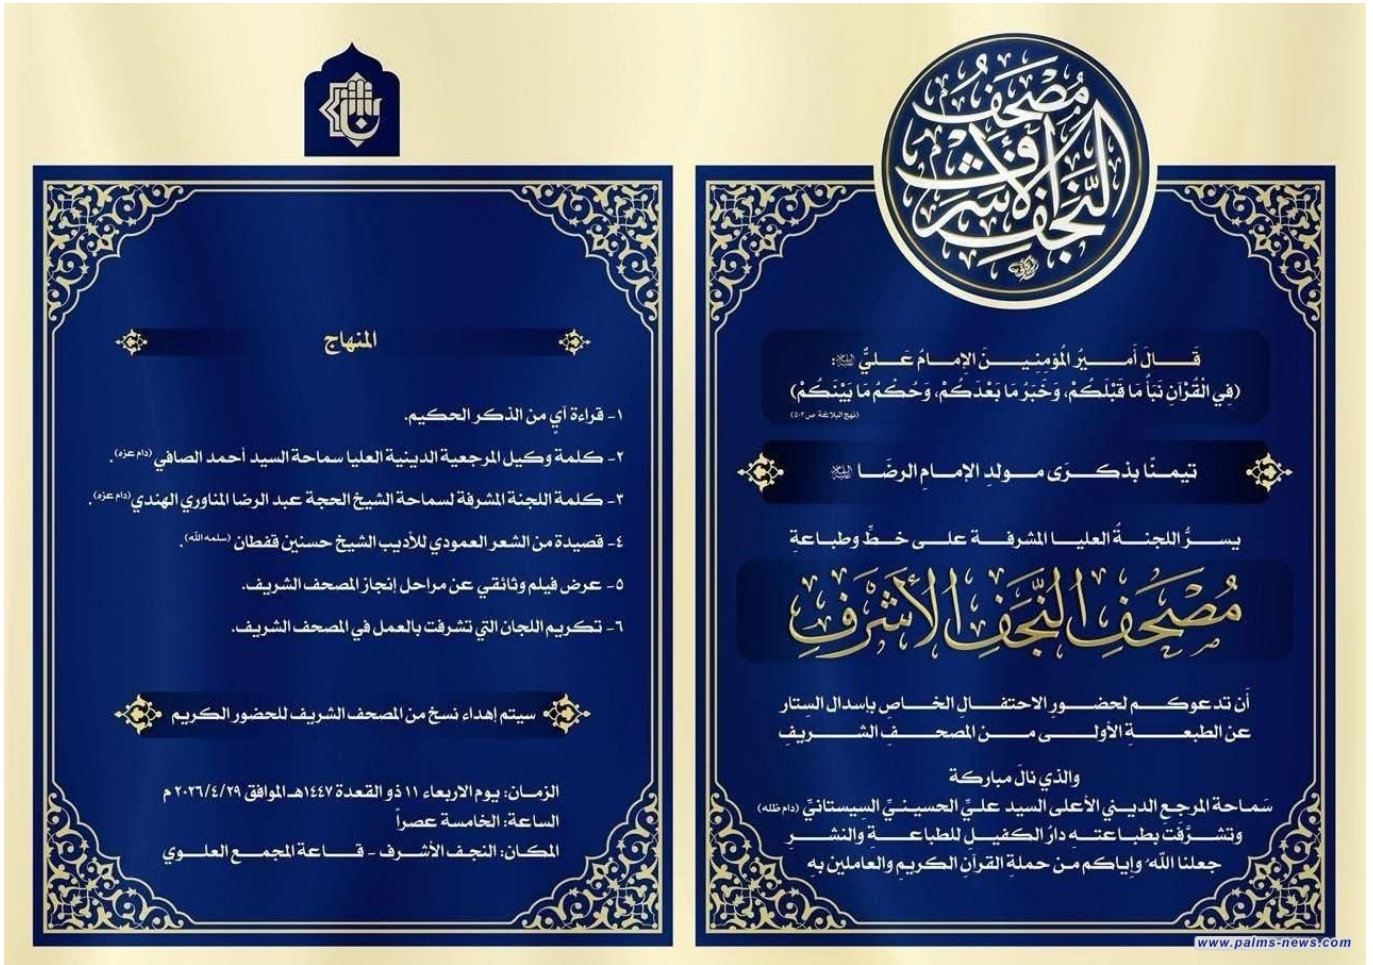 مُصْحَفُ النَّجَفِ الأَشْرَفِ
قَالَ أَمِيرُ المُؤمِنِينَ الإمامُ عَليٌّ عليه السلام:
(فِي الْقُرْآنِ نَبَأُ مَا قَبْلَكُمْ، وَخَبَرُ مَا بَعْدَكُمْ، وَحُكْمُ مَا بَيْنَكُمْ)
(نهج البلاغة ص٥٠٢)
تيمنًا بذكرَى مولدِ الإمامِ الرضَا عليه السلام
يسرُّ اللجنةُ العليا المشرفة على خطِّ وطباعةِ
مُصْحَفِ النَّجَفِ الأَشْرَفِ
أَن تدعوكم لحضورِ الاحتفالِ الخاصِ بإسدال الستار
عن الطبعةِ الأولى من المصحفِ الشريفِ
والذي نالَ مباركة
سَماحة المرجع الديني الأعلى السيد عليِّ الحسينيِّ السيستانيِّ (دام ظله)
وتشرَّفت بطباعتهِ دارُ الكفيلِ للطباعةِ والنشرِ
جعلنا اللهُ وإياكم من حملةِ القرآنِ الكريمِ والعاملين بهِ
المنهاج
١- قراءة آيٍ من الذكر الحكيم.
٢- كلمة وكيل المرجعية الدينية العليا سماحة السيد أحمد الصافي (دام عزه).
٣- كلمة اللجنة المشرفة لسماحة الشيخ الحجة عبد الرضا المناوري الهندي (دام عزه).
٤- قصيدة من الشعر العمودي للأديب الشيخ حسنين قفطان (سلمه الله).
٥- عرض فيلم وثائقي عن مراحل إنجاز المصحف الشريف.
٦- تكريم اللجان التي تشرفت بالعمل في المصحف الشريف.
سيتم إهداء نسخ من المصحف الشريف للحضور الكريم
الزمان: يوم الاربعاء ١١ ذو القعدة ١٤٤٧هـ الموافق ٢٠٢٦/٤/٢٩ م
الساعة: الخامسة عصراً
المكان: النجف الأشرف - قاعة المجمع العلوي
www.palms-news.com